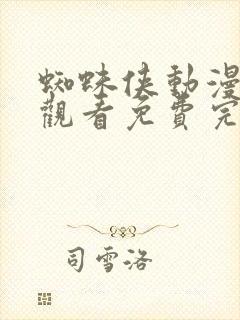 蜘蛛俠動漫
觀看免費完
司雪洛